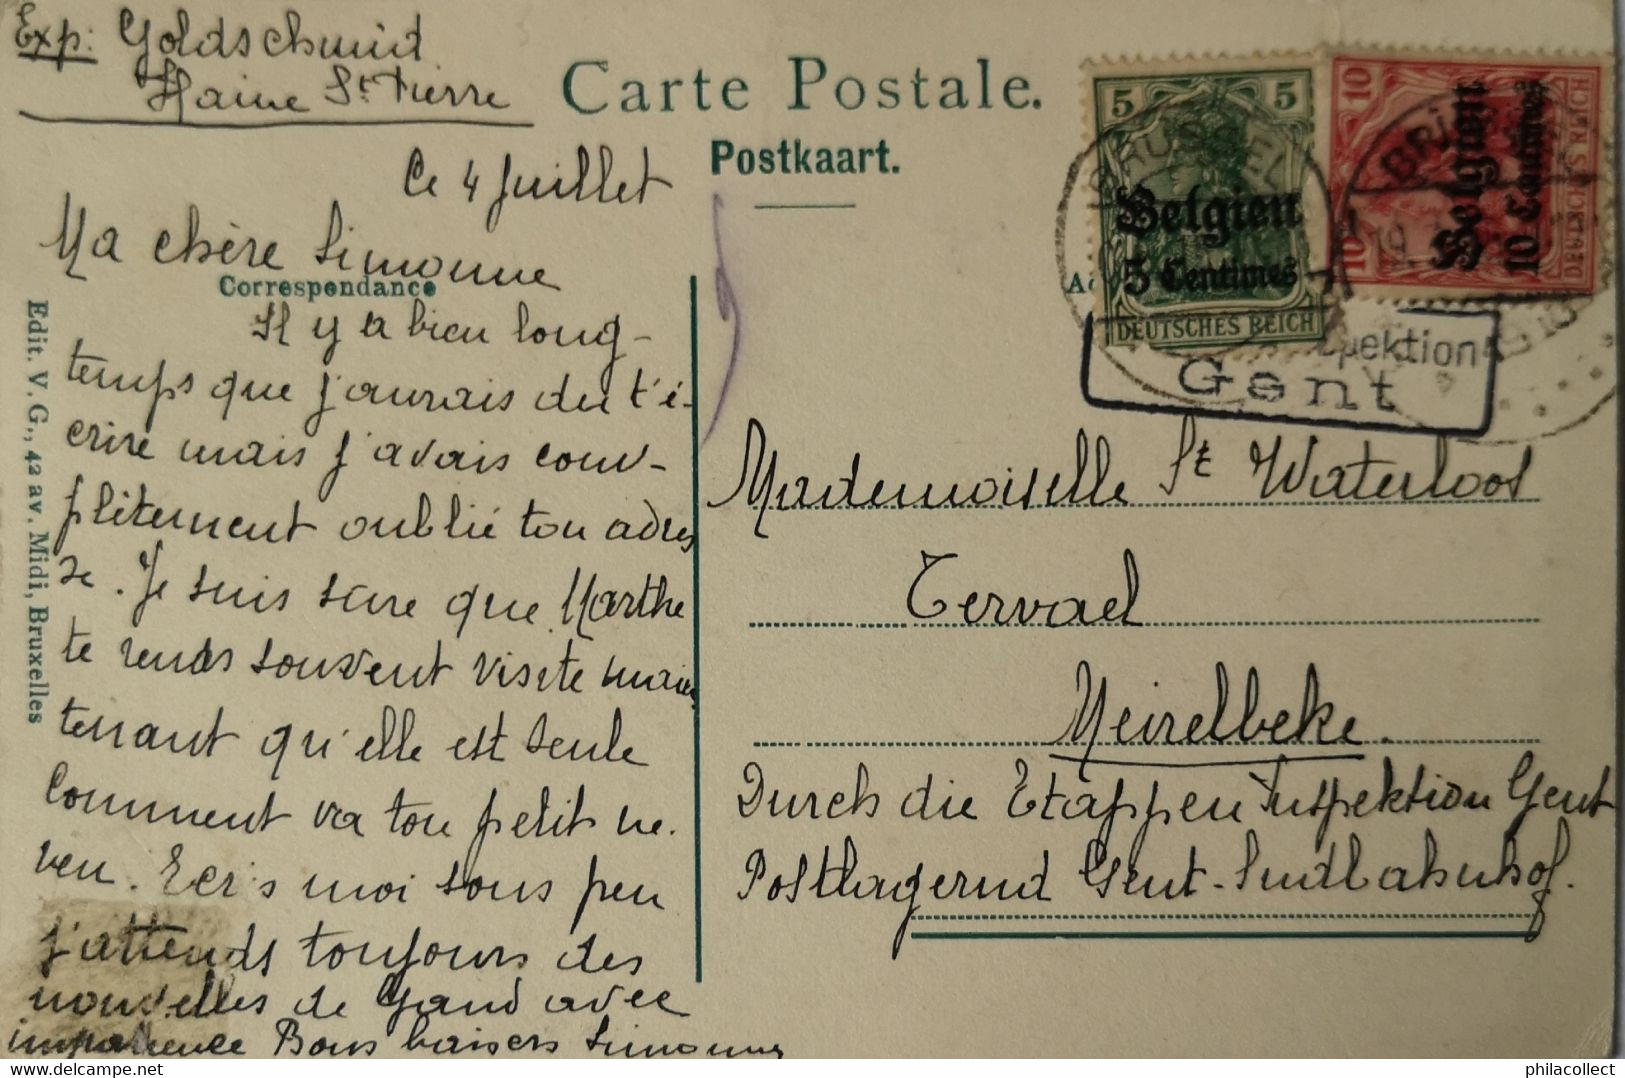 Exp: Goldschmid
Haine St. Pierre
Carte Postale.
Postkaart.
Ce 4 Juillet
Ma chère Simonne
Correspondance
Il y a bien long-
temps que j'aurais du t'é-
crire mais j'avais com-
plitement oublié ton adres
se. Je suis sûre que Marthe
te rends souvent visite main
tenant qu'elle est seule
Comment va ton petit ne.
veu. Ecris moi sous peu
j'attends toujours des
nouvelles de Gand avec
impatience Bons baisers Simonne
Edit. V. G., 42 av. Midi, Bruxelles
5 5
Belgien
5 Centimes
DEUTSCHES REICH
10 10
Belgien
10 Centimes
DEUTSCHES REICH
BRÜSSEL
pektion
Gent
Mademoiselle St Waterloos
Tervael
Meirelbeke.
Durch die Etappen Inspektion Gent
Postlagernd Gent-Sudbahnhof.
philacollect